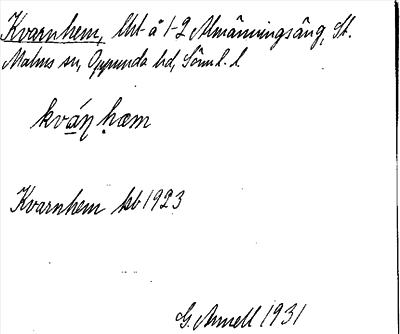 Kvarnhem, lht å 1-2 Almänningsäng, St.
Malms sn, Oppunda hd, Söml. l.
kváɳ hæm
Kvarnhem kb 1923
G. Arnell 1931